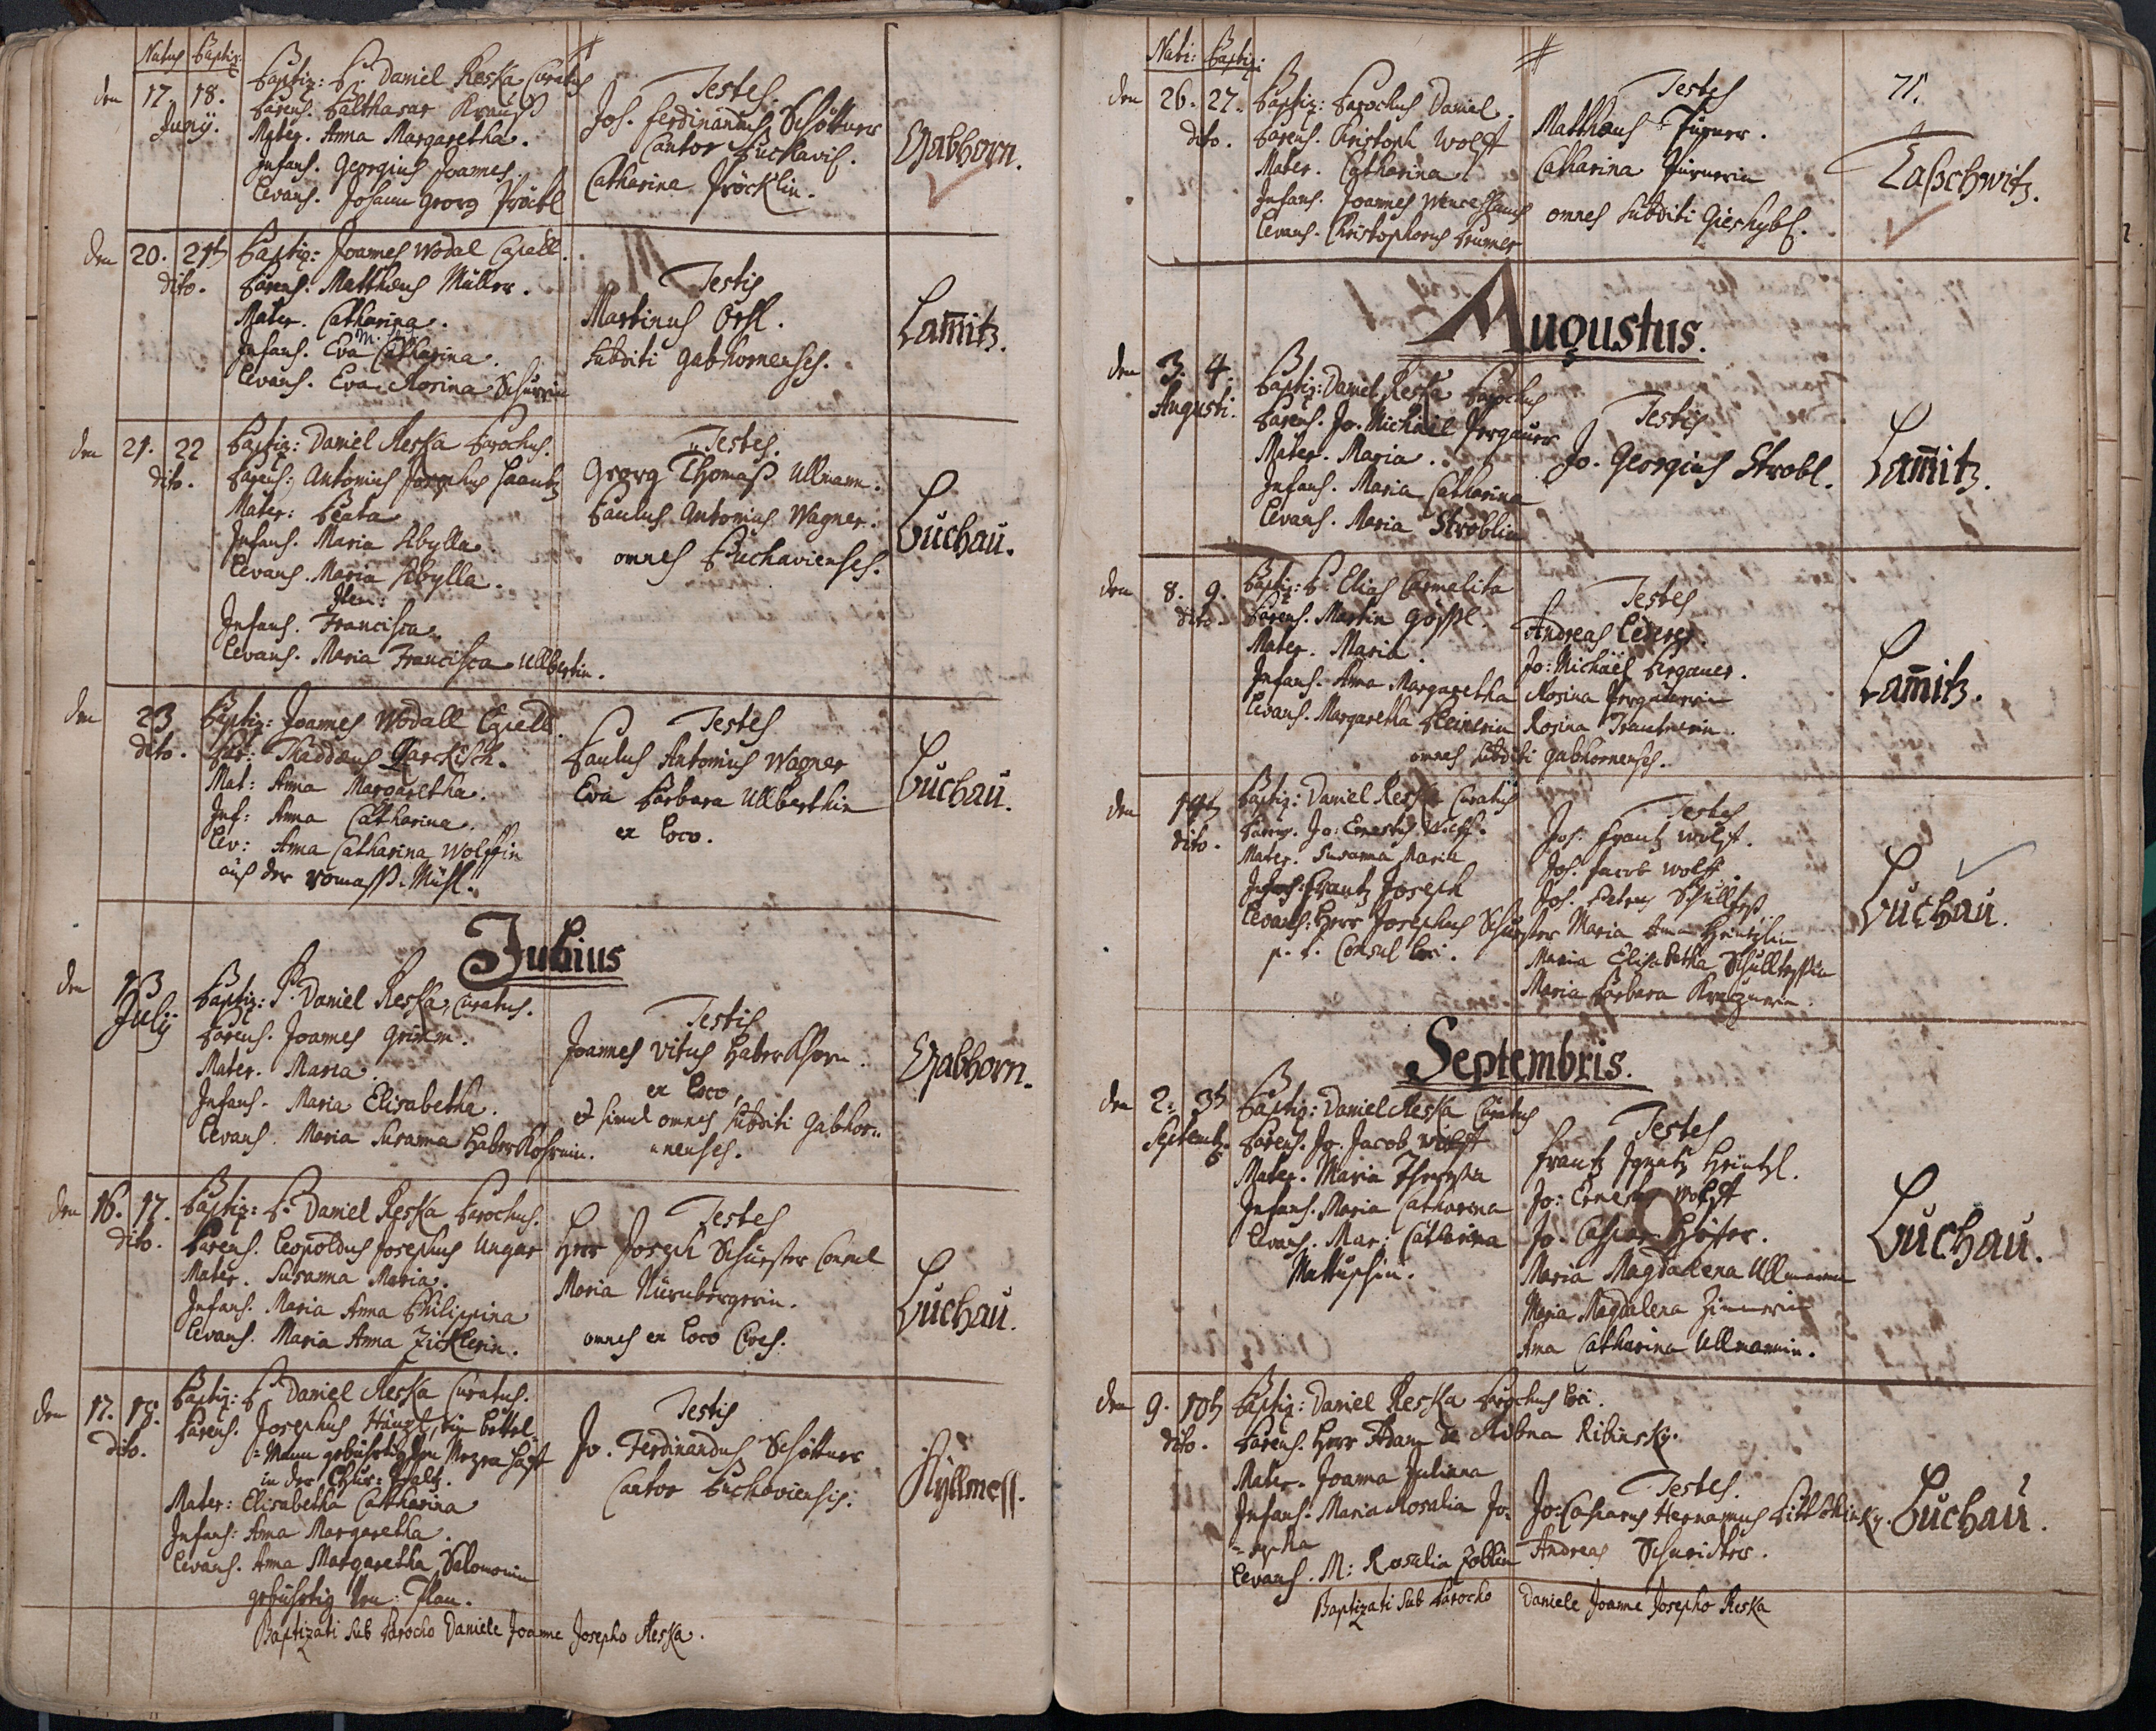 Natus Baptiz:
den 17. 18. Junÿ.
Baptiz: P. Daniel Reska Curatus
Parens. Balthasar Krauß
Mater. Anna Margaretha.
Infans. Georgius Joannes.
Levans. Johann Georg
Testes
Joh. Ferdinandus Schöttner
Cantor Luchavis.
Catharina
Gabhorn.
den 20. 21t dito.
Baptiz: Joannes Wodal Capell.
Parens. Matthæus Müller.
Mater. Catharina.
Infans. Eva Catharina.
Levans. Eva Rosina
Testis
Martinus
Subditi Gabhornenses.
Lam̄itz.
den 21. 22 dito.
Baptiz: Daniel Reska Parochus.
Parens: Antonius Josephus
Mater: Beata
Infans. Maria Sibylla.
Levans. Maria Sibylla.
Item:
Infans. Francisca.
Levans. Maria Francisca Ullbertin.
Testes.
Georg Thomaß Ullmann.
Paulus Antonius Wagner.
omnes Luchavienses.
Luchau.
den 23 dito.
Baptiz: Joannes Wodall Capell.
Par: Thaddæus
Mat: Anna Margaretha.
Inf: Anna Catharina.
Lev: Anna Catharina Wolffin
auß der Mühl.
Testes
Paulus Antonius Wagner
Eva Barbara Ullberthin
ex loco.
Luchau.
Julius
den 13 Julÿ
Baptiz: P. Daniel Reska, Curatus.
Parens. Joannes Grimm.
Mater. Maria.
Infans. Maria Elisabetha.
Levans. Maria Susanna Haberkohrnin.
Testis
Joannes Vitus Haberkhorn.
ex loco,
et simul omnes Subditi Gabhor„
„nenses.
Gabhorn.
den 16. 17. dito.
Baptiz: P. Daniel Reska Parochus.
Parens. Leopoldus Josephus Ungar
Mater. Susanna Maria.
Infans. Maria Anna Philippina
Levans. Maria Anna Zicklerin.
Testes
Herr Joseph Schuster Consul
Maria Nürnbergerin.
omnes ex loco Cives.
Luchau.
den 17. 18. dito.
Baptiz: P. Daniel Reska Curatus.
Parens. Josephus Haupt, ein bettel„
„Mann gebührtig von
in der Chur: Pfaltz.
Mater: Elisabetha Catharina
Infans: Anna Margaretha.
Levans. Anna Margaretha Salomonin
gebührtig von: Plan.
Testis
Jo. Ferdinandus Schöttner
Cantor Luchoviensis.
Kÿllmeß.
Baptizati Sub Parocho Daniele Joanne Josepho Reska.
Nati: Baptiz:
71.
den 26. 27. dito.
Baptiz: Parochus Daniel.
Parens. Christoph Wolff
Mater. Catharina.
Infans. Joannes Wenceslaus
Levans. Christophorus
Testes
Matthæus Türner.
Catharina Türnerin
omnes Subditi Gieshybl.
Laßchwitz.
Augustus.
den 3. 4. Augusti.
Baptiz: Daniel Reska Parochus
Parens. Jo. Michäel Pergauer
Mater. Maria.
Infans. Maria Catharina
Levans. Maria Stroblin
Testis
Jo. Georgius Strobl.
Lam̄itz.
den 8. 9. dito.
Baptiz: P. Elias Carmelita
Parens. Martin Gößl.
Mater. Maria.
Infans. Anna Margaretha
Levans. Margaretha
Testes
Andreas Lederer.
Jo: Michäel Pergauer.
Rosina Pergauerin
Rosina Trautnerin.
omnes Subditi Gabhornenses.
Lam̄itz.
den dito.
Baptiz: Daniel Reska Curatus
Parens. Jo: Ernestus Wolff.
Mater. Susanna Maria
Infans: Frantz Joseph
Levans: Herr Josephus Schuster
p. t. Consul loci.
Testes
Joh. Frantz Wolff.
Joh. Jacob Wolff.
Joh. Petrus Schulltes
Maria Anna Heintzlin
Maria Elisabetha Schulltessin
Maria Barbara
Luchau.
Septembris.
den 2. 3t Septemb.
Baptiz: Daniel Reska Curatus
Parens. Jo. Jacob Wolff
Mater. Maria Theresia
Infans. Maria Catharina
Levans. Mar: Catharina
Testes
Frantz Ignatz Heintzl.
Jo: Ernestus Wolff
Jo. Caspar Höfer.
Maria Magdalena Ullmanin
Maria Magdalena Zimmerin
Anna Catharina Ullmannin.
Luchau.
den 9. 10t dito.
Baptiz: Daniel Reska Parochus loci.
Parens. Herr Adam de Ribna Ribinsky.
Mater. Joanna Juliana
Infans. Maria Rosalia Jo„
„sepha
Levans. M: Rosalia Zoblin
Testes.
Jo: Casparus Hermanus
Andreas
Luchau.
Baptizati Sub Parocho Daniele Joanne Josepho Reska